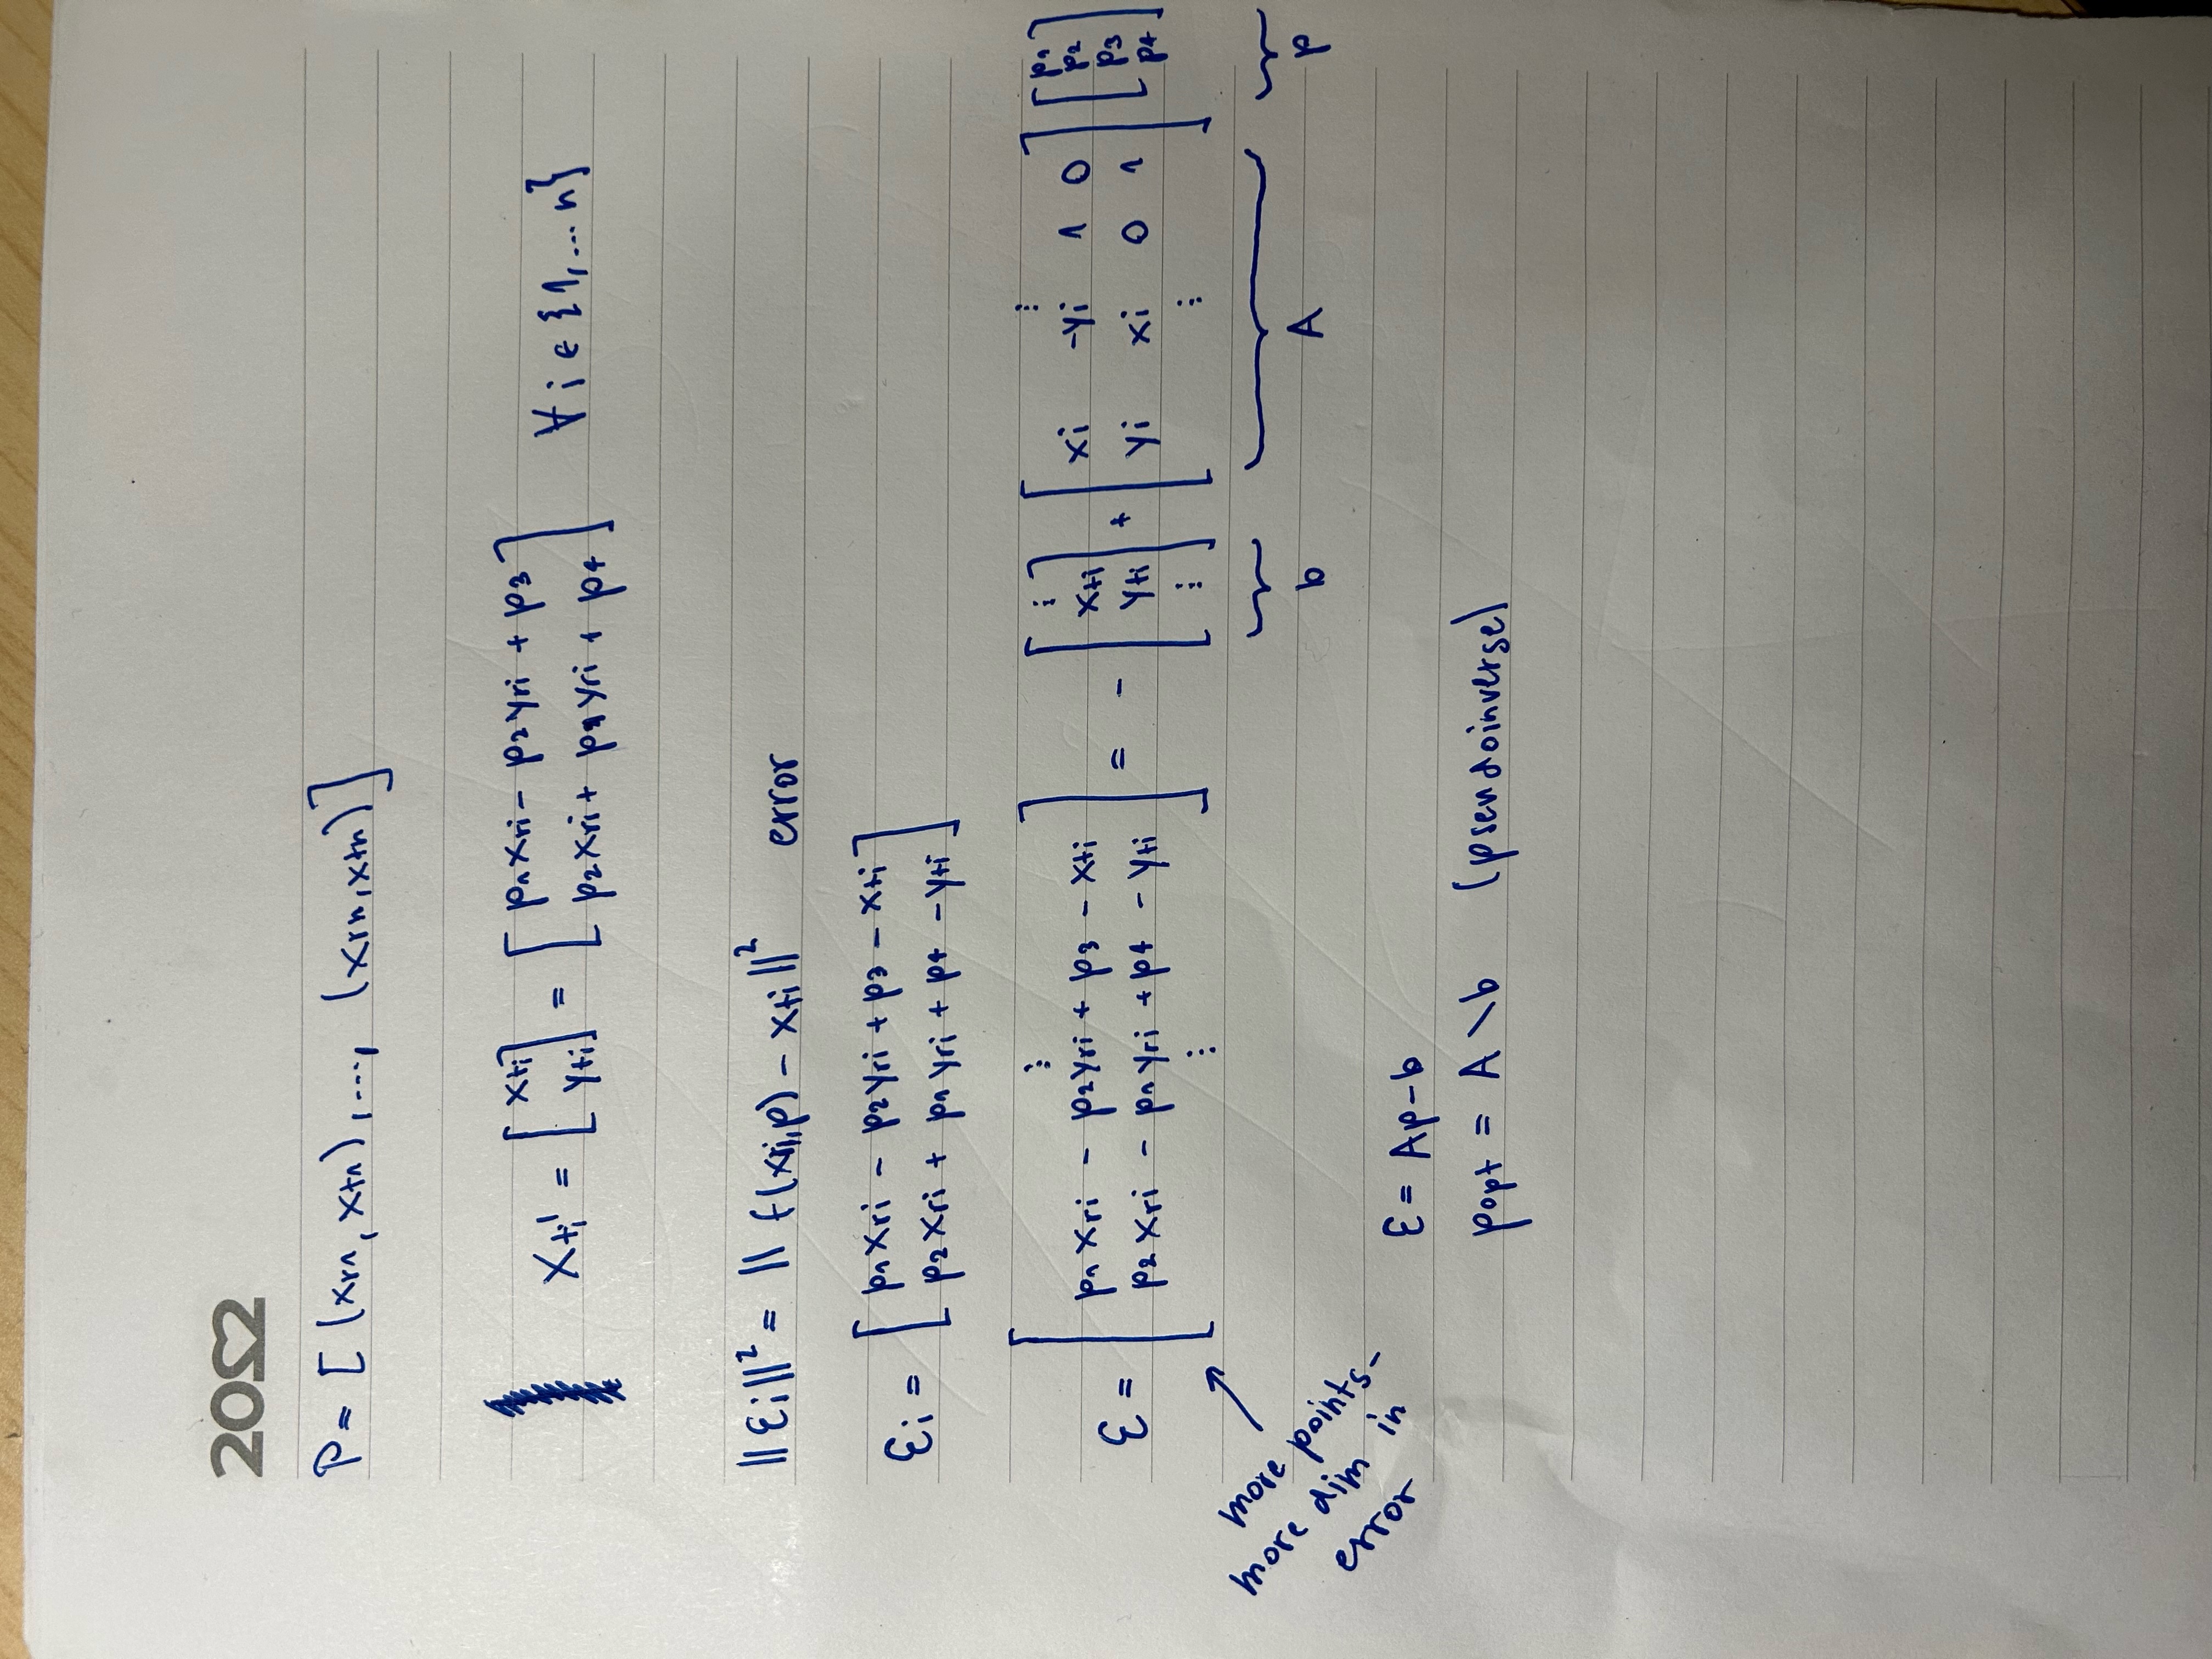 2022
P = [ (xr1, xt1), ..., (xrn, xtn) ]
Xti' = [ xti ; yti ] = [ p1 xri - p2 yri + p3 ; p2 xri + p1 yri + p4 ] ∀ i ∈ {1, ... n}
||εi||² = || f(xri, p) - xti ||² error
εi = [ p1 xri - p2 yri + p3 - xti ; p2 xri + p1 yri + p4 - yti ]
ε = [ ⋮ ; p1 xri - p2 yri + p3 - xti ; p2 xri - p1 yri + p4 - yti ; ⋮ ] = - [ ⋮ ; xti ; yti ; ⋮ ] + [ ⋮ ; xi -yi 1 0 ; yi xi 0 1 ; ⋮ ] [ p1 ; p2 ; p3 ; p4 ]
b A p
more points-
more dim in
error
ε = Ap - b
popt = A \ b (pseudoinverse)